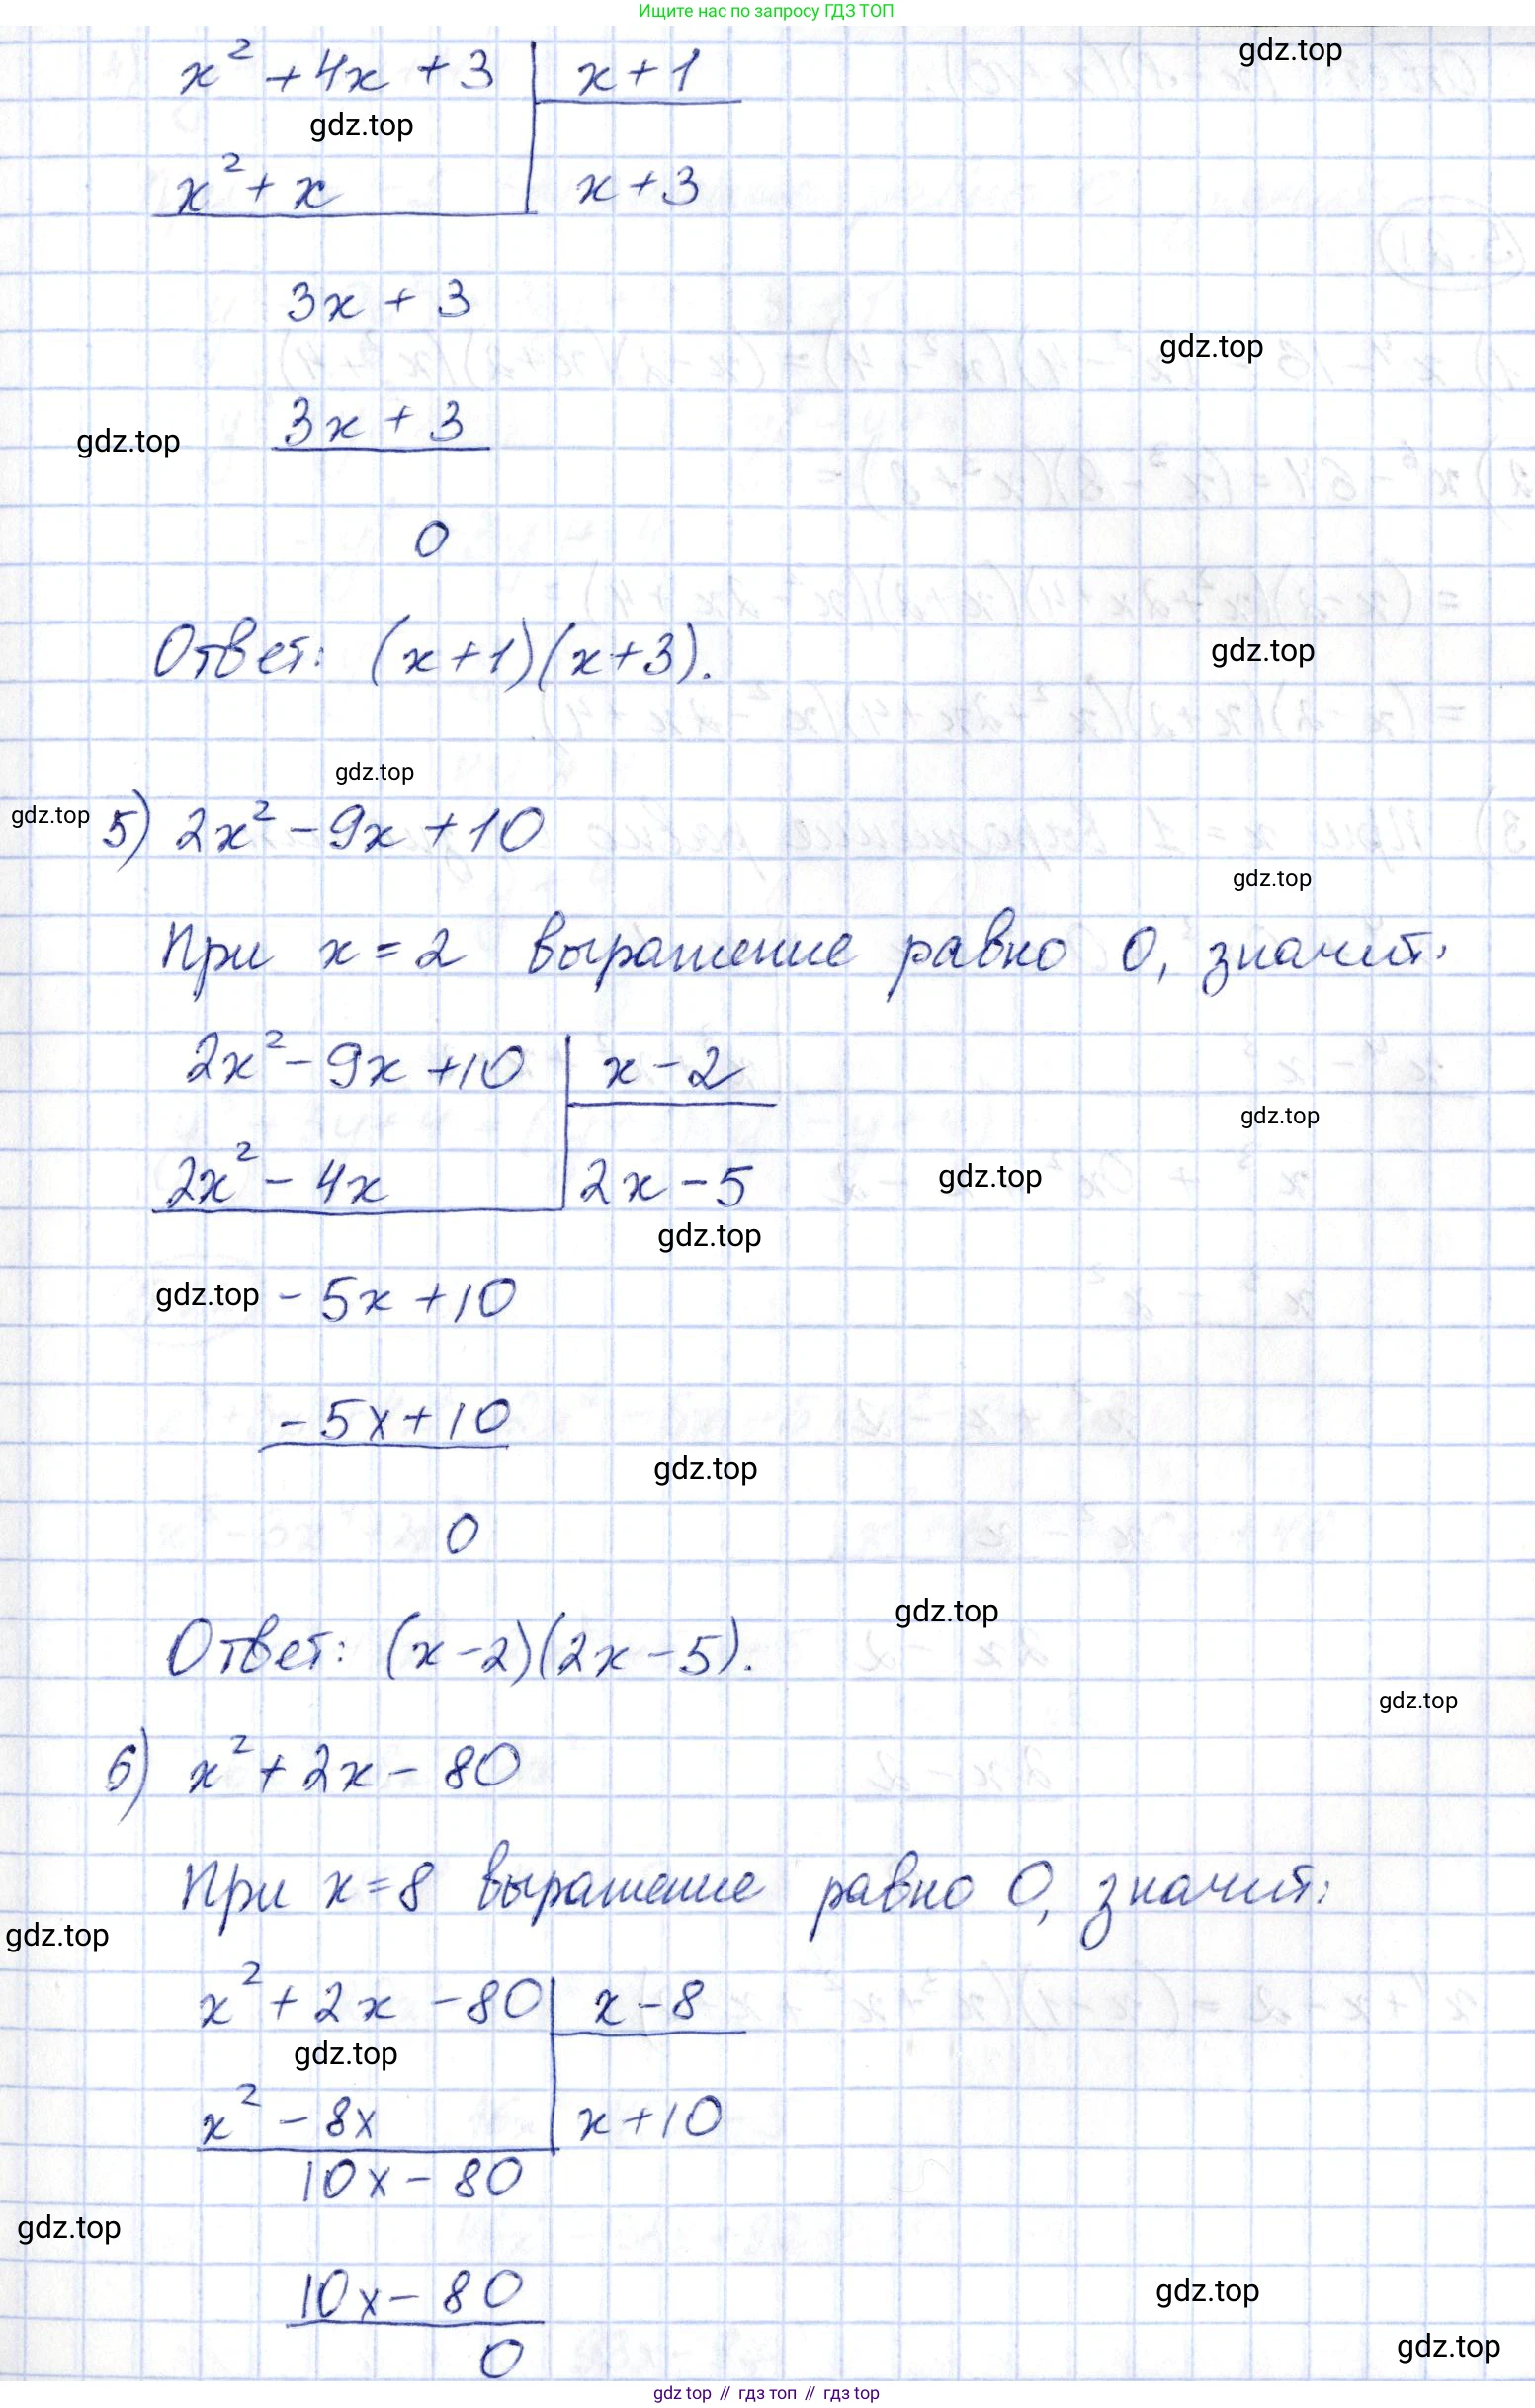 Ищите нас по запросу ГДЗ ТОП
x² + 4x + 3 | x + 1
gdz.top
gdz.top
x² + x | x + 3
3x + 3
gdz.top
3x + 3
gdz.top
0
Ответ: (x+1)(x+3).
gdz.top
gdz.top
gdz.top
5) 2x² - 9x + 10
gdz.top
При x = 2 выражение равно 0, значит:
2x² - 9x + 10 | x - 2
gdz.top
2x² - 4x | 2x - 5
gdz.top
gdz.top
gdz.top
- 5x + 10
- 5x + 10
gdz.top
0
gdz.top
Ответ: (x-2)(2x-5).
gdz.top
6) x² + 2x - 80
При x = 8 выражение равно 0, значит:
gdz.top
x² + 2x - 80 | x - 8
gdz.top
x² - 8x | x + 10
10x - 80
gdz.top
10x - 80
gdz.top
0
gdz.top
gdz top // гдз топ // гдз top